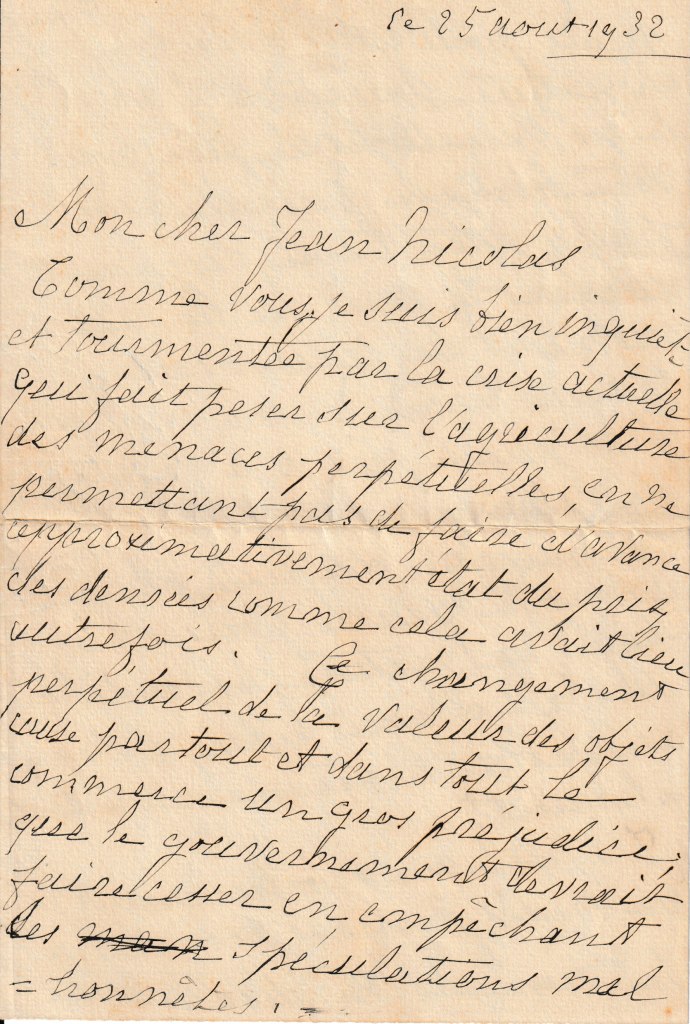 le 25 aout 1932
Mon cher Jean Nicolas
Comme vous, je suis bien inquiète
et tourmentée par la crise actuelle
qui fait peser sur l'agriculture
des menaces perpétuelles, en ne
permettant pas de faire d'avance
approximativement état du prix
des denrées comme cela avait lieu
autrefois. Ce changement
perpétuel de la valeur des objets
cause partout et dans tout le
commerce un gros préjudice,
que le gouvernement devrait
faire cesser en empêchant
les man spéculations mal
=honnêtes. =